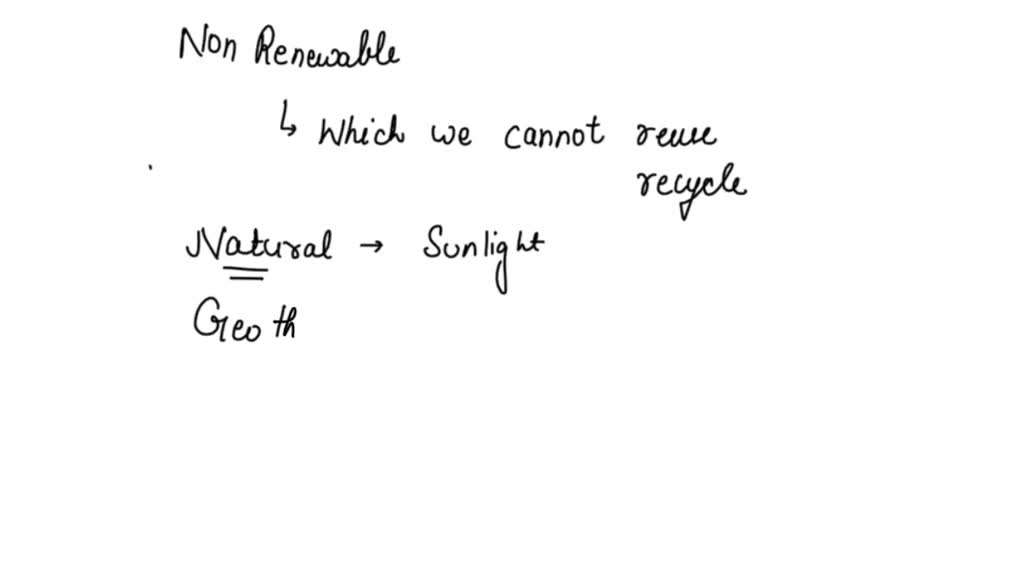 Non Renewable
↳ Which we cannot reuse
recycle
Natural → Sunlight
Geoth